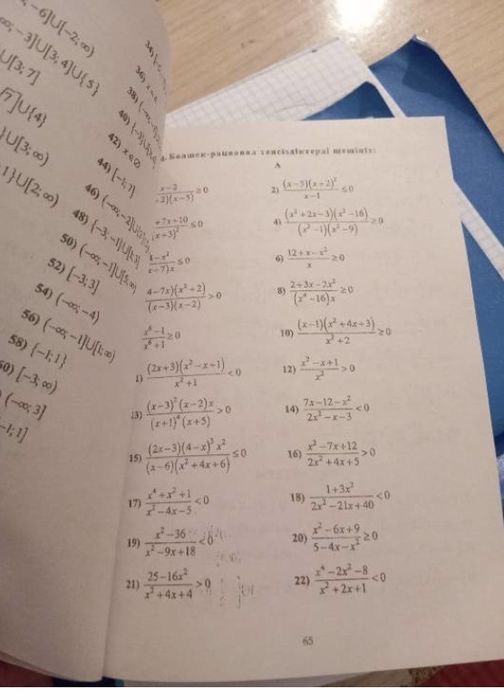 -6]∪[-2;∞)
-3]∪[3;4]∪{5}
∪[3;7]
√7]∪{4}
}∪[3;∞)
1}∪[2;∞)
34)
36)
38)
40)
42) x∈∅
44) [-1;7]
46) (-∞;-2]∪
48) {-3;-1}∪[1;3]
50) (-∞;-1]∪[5;∞)
52) [-3;3]
54) (-∞;-4)
56) (-∞;-1]∪[1;∞)
58) {-1;1}
60) [-3;∞)
(-∞;3]
-1;1]
4. Бөлшек-рационал теңсіздіктерді шешіңіз:
А
x-2/+2)(x-5) ≥0
2) (x-5)(x+2)²/x-1 ≤0
+7x+10/(x+3)² ≤0
4) (x²+2x-3)(x²-16)/(x²-1)(x²-9) ≥0
4-x²/x+7)x ≤0
6) 12+x-x²/x ≥0
4-7x)(x²+2)/(x-3)(x-2) >0
8) 2+3x-2x²/(x⁴-16)x ≥0
x⁶-1/x⁶+1 ≥0
10) (x-1)(x²+4x+3)/x²+2 ≥0
1) (2x+3)(x²-x+1)/x²+1 <0
12) x²-x+1/x² >0
13) (x-3)²(x-2)x/(x+1)⁴(x+5) >0
14) 7x-12-x²/2x²-x-3 <0
15) (2x-3)(4-x)³x²/(x-6)(x²+4x+6) ≤0
16) x²-7x+12/2x²+4x+5 >0
17) x⁴+x²+1/x²-4x-5 <0
18) 1+3x²/2x²-21x+40 <0
19) x²-36/x²-9x+18 <0
20) x²-6x+9/5-4x-x² ≥0
21) 25-16x²/x²+4x+4 >0
22) x⁴-2x²-8/x²+2x+1 <0
65